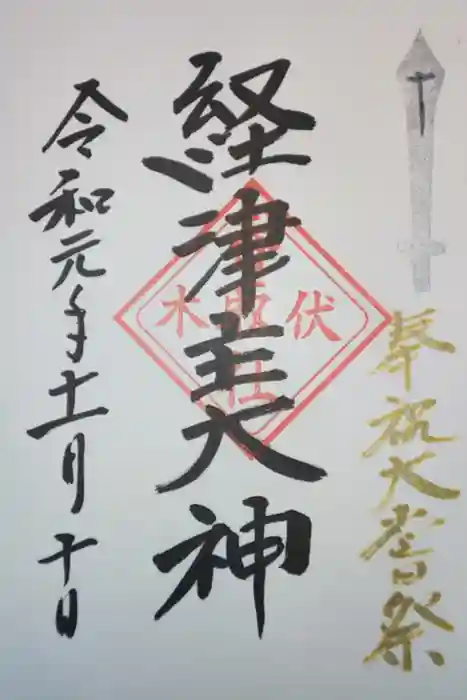 奉祝大嘗祭
経津主大神
伏木
令和元年十一月十日